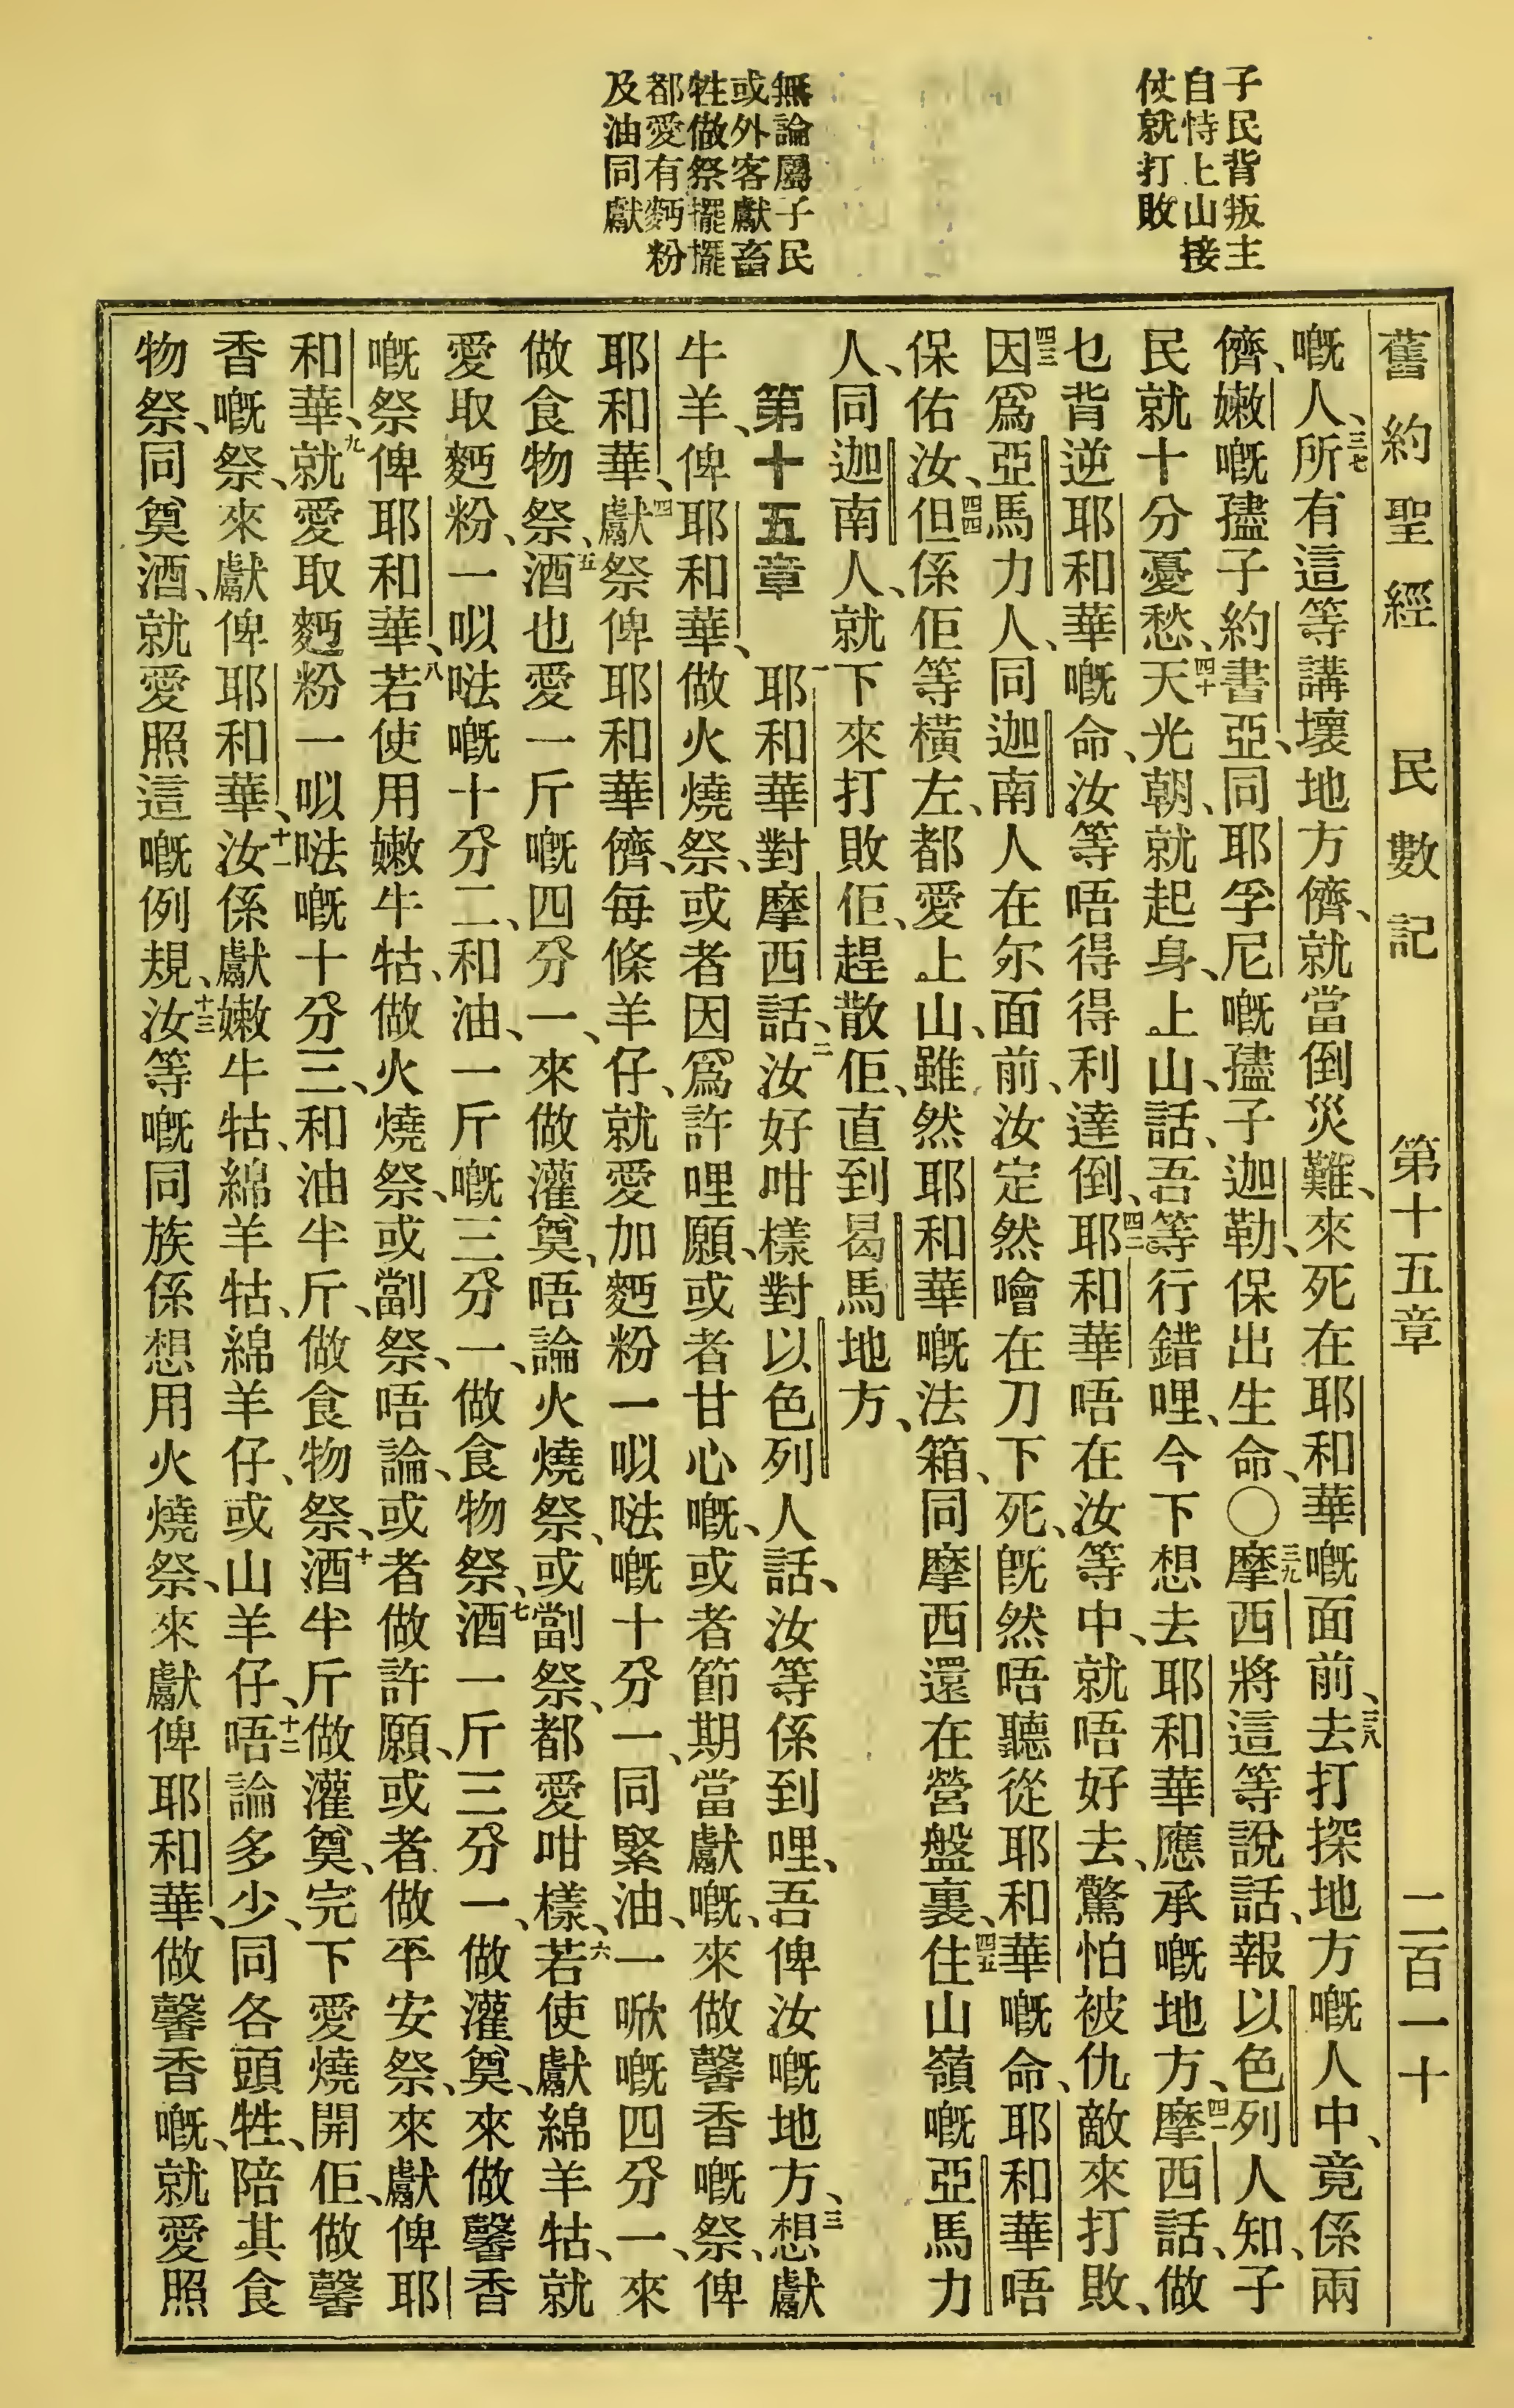 子民背叛主
自恃上山接
仗就打敗
無論屬子民
或外客獻畜
牲做祭擺擺
都愛有麪粉
及油同獻
舊約聖經 民數記 第十五章 二百一十
嘅人、三七所有這等講壞地方儕、就當倒災難、來死在耶和華嘅面前、三八去打探地方嘅人中、竟係兩
儕、嫩嘅孻子約書亞、同耶孚尼嘅孻子迦勒、保出生命、〇三九摩西將這等說話、報以色列人知、子
民就十分憂愁、四十天光朝、就起身、上山、話、吾等行錯哩、今下想去耶和華應承嘅地方、四一摩西話、做
乜背逆耶和華嘅命、汝等唔得得利達倒、四二耶和華唔在汝等中、就唔好去、驚怕被仇敵來打敗、
四三因爲亞馬力人、同迦南人在尔面前、汝定然噲在刀下死、旣然唔聽從耶和華嘅命、耶和華唔
保佑汝、四四但係佢等橫左、都愛上山、雖然耶和華嘅法箱、同摩西還在營盤裏、四五住山嶺嘅亞馬力
人、同迦南人、就下來打敗佢、趕散佢、直到曷馬地方、
第十五章 一耶和華對摩西話、二汝好咁樣對以色列人話、汝等係到哩、吾俾汝嘅地方、三想獻
牛羊、俾耶和華、做火燒祭、或者因爲許哩願、或者甘心嘅、或者節期當獻嘅、來做馨香嘅祭、俾
耶和華、四獻祭俾耶和華儕、每條羊仔、就愛加麪粉一㕥㕸嘅十分一、同緊油、一㗾嘅四分一、來
做食物祭、五酒也愛一斤嘅四分一、來做灌奠、唔論火燒祭、或劏祭、都愛咁樣、六若使獻綿羊牯、就
愛取麪粉、一㕥㕸嘅十分二、和油、一斤嘅三分一、做食物祭、七酒一斤三分一、做灌奠、來做馨香
嘅祭俾耶和華、八若使用嫩牛牯、做火燒祭、或劏祭、唔論、或者做許願、或者做平安祭、來獻俾耶
和華、九就愛取麪粉一㕥㕸嘅十分三、和油半斤、做食物祭、十酒半斤做灌奠、完下愛燒開佢、做馨
香嘅祭、來獻俾耶和華、十一汝係獻嫩牛牯、綿羊牯、綿羊仔、或山羊仔、十二唔論多少、同各頭牲、陪其食
物祭、同奠酒、就愛照這嘅例規、十三汝等嘅同族係想用火燒祭、來獻俾耶和華、做馨香嘅、就愛照